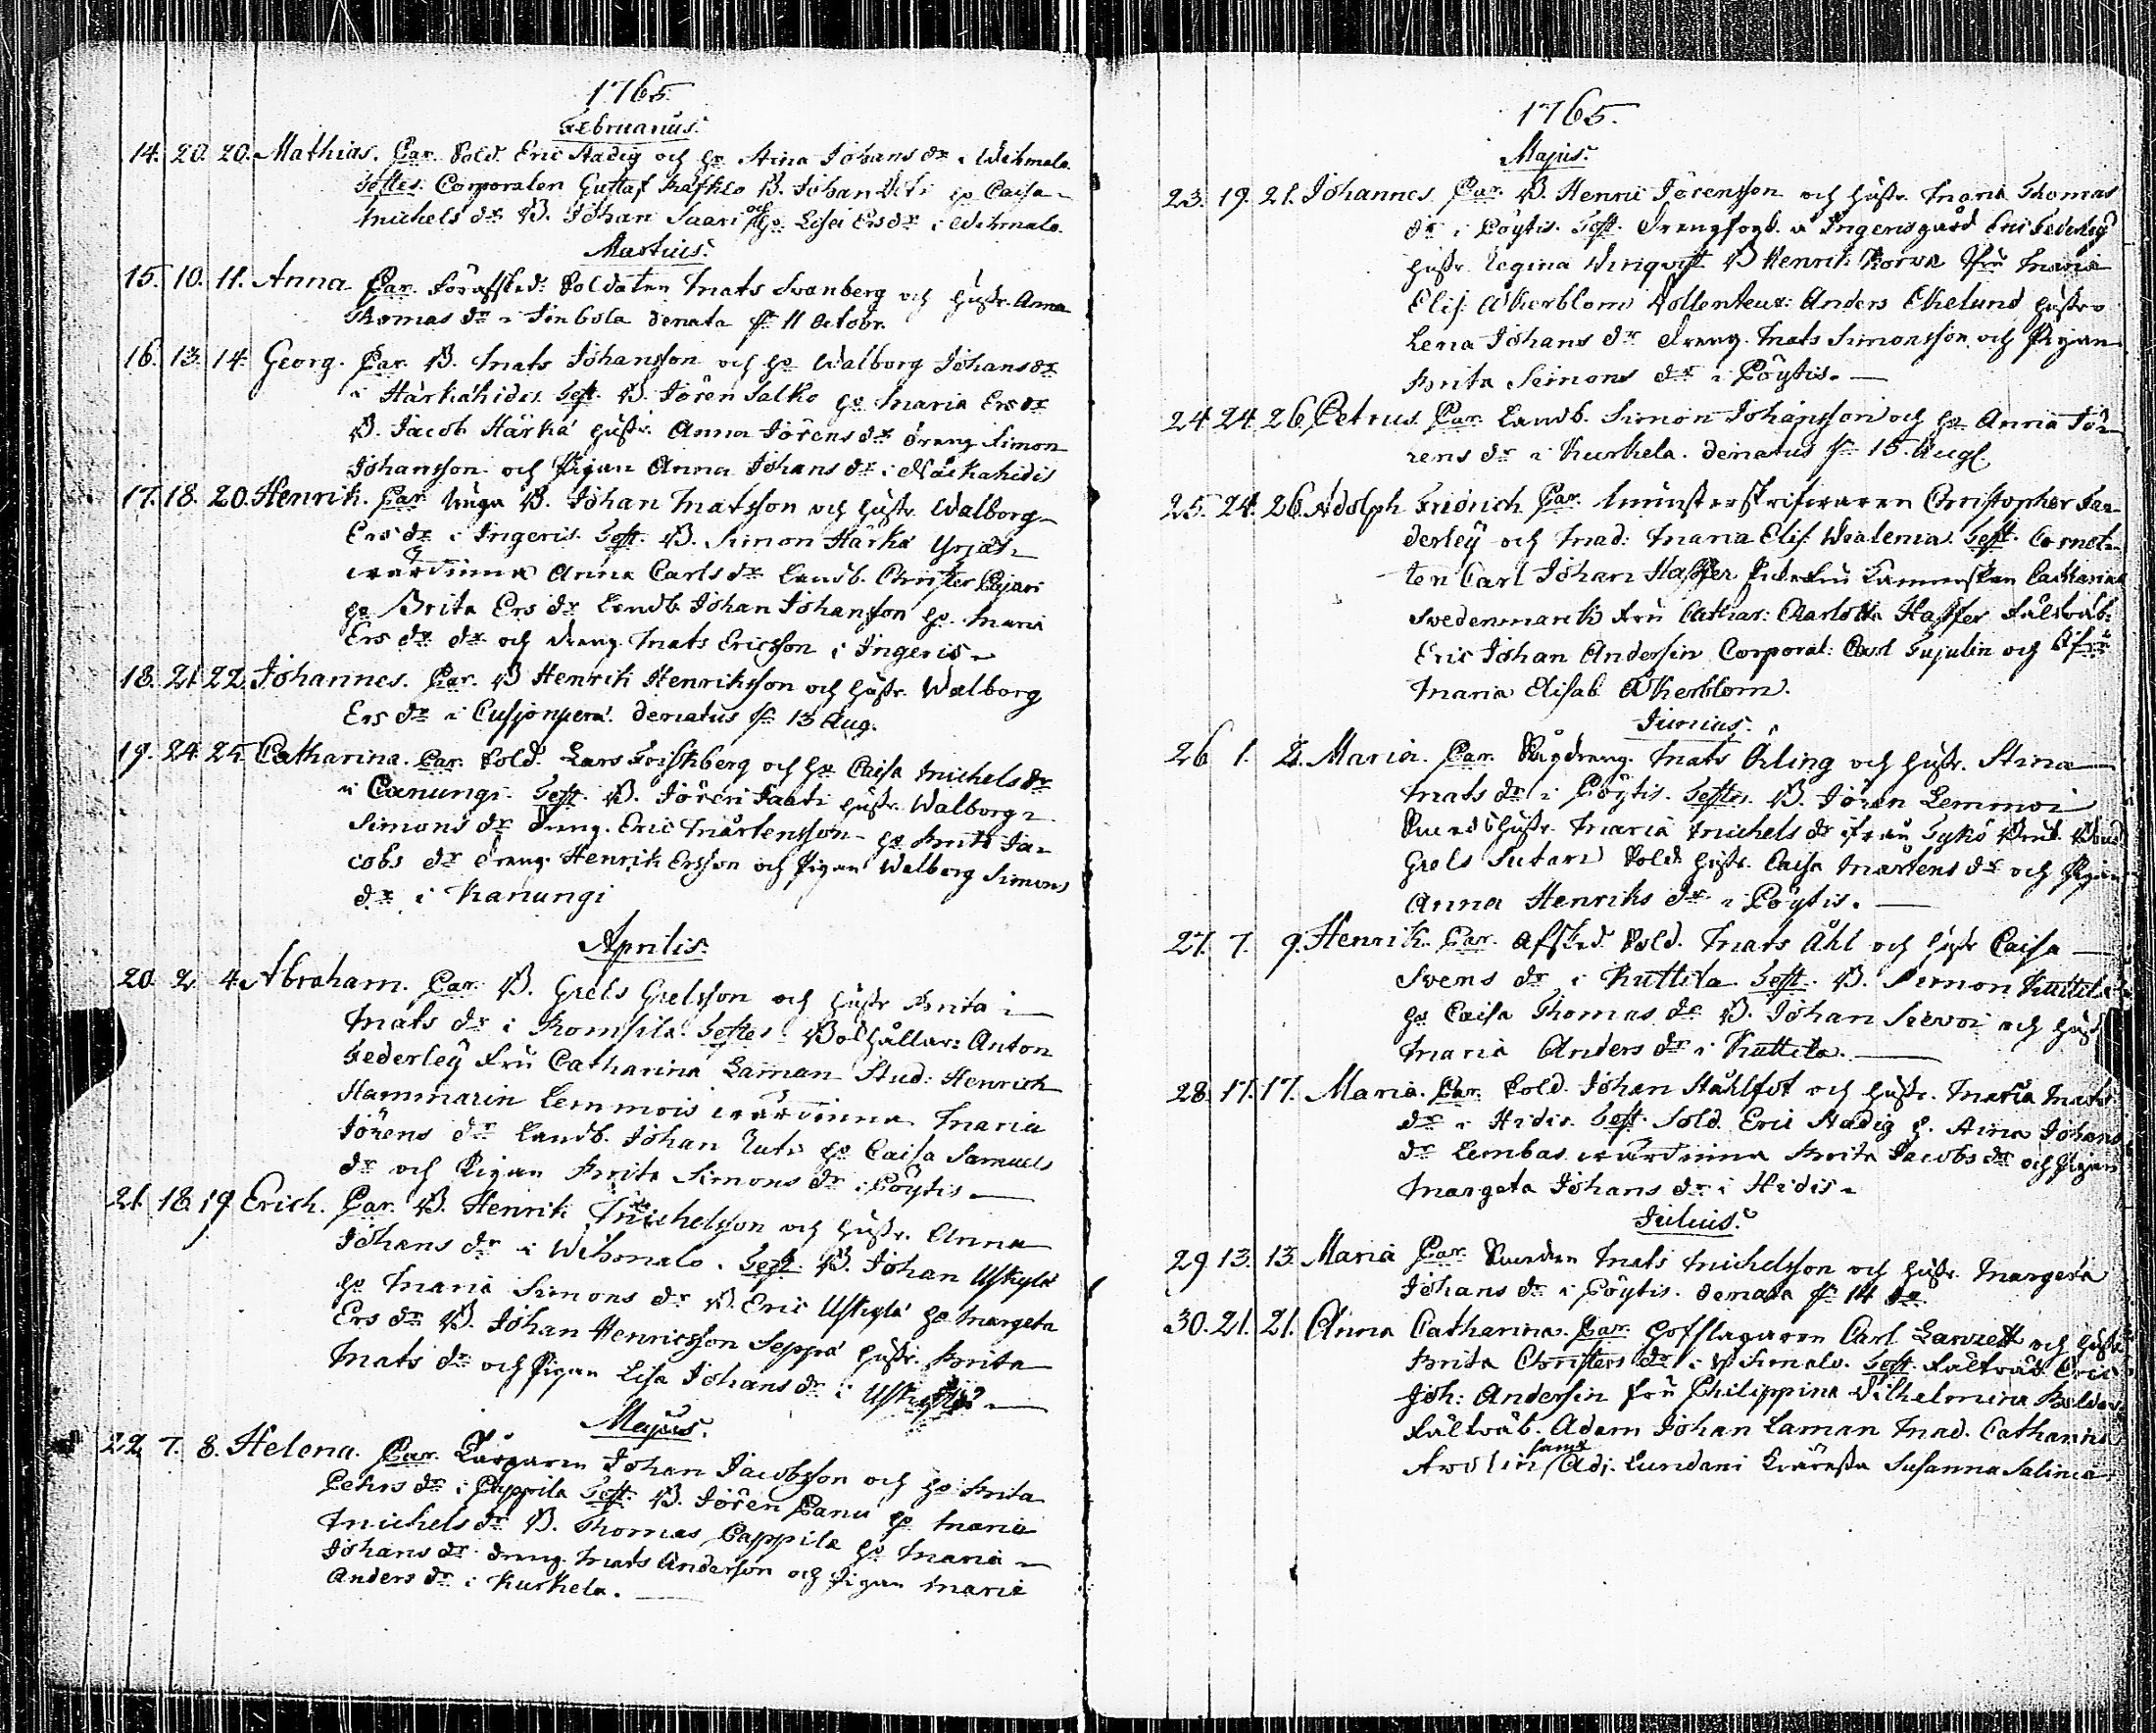 1765.
Februarius.
14. 20. 20. Mathias. Par. Sold. Eric Stadig och h. Stina Johans dr i Wihmalo.
Testes. Corporalen Gustaf B. Johan h. Caisa
Michels dr B. Johan Saari och h. Lisa Ers dr i Wihmalo.
Martius.
15. 10. 11. Anna Par. Förafsked: Soldaten Mats Svanberg och hustr. Anna
Thomas dr i denata d. 11 Octobr.
16. 13. 14. Georg. Par. B. Mats Johansson och h. Walborg Johans dr
i Härkähidis Test. B. Jören Salko h. Maria Ers dr
B. Jacob Härkä hustr. Anna Jörens dr dreng Simon
Johansson och Pigan Anna Johans dr i Härkähidis
17. 18. 20. Henrik. Par. Unga B. Johan Matsson och hustr. Walborg
Ers dr i Ingeris. Test. B. Simon Härkä
wärdinna Anna Carls dr Landb. Christer Pajari
h. Brita Ers dr Landb. Johan Johansson h. Maria
Ers dr och dreng. Mats Ericsson i Ingeris
18. 21. 22. Johannes. Par. B Henrik Henriksson och hustr. Walborg
Ers dr i denatus d. 13 Aug.
19. 24. 25. Catharina. Par. Sold. Lars Friskberg och h. Caisa Michels dr
i Canungi. Test. B. Jören hustr. Walborg
Simons dr dreng. Eric Mårtensson h. Brita Ja-
cobs dr dreng. Henrik Ersson och Pigan Walborg Simons
dr i Kanungi
Aprilis.
20. 2. 4. Abraham. Par. B. Grels Grelsson och hustr Brita
Mats dr i Testes. Bolhållar: Anton
Federleÿ Fru Catharina Laman Stud: Henrich
Hammarin Lemmois wärdinna Maria
Jörens dr Landb. Johan h. Caisa Samuels
dr och Pigan Brita Simons dr i Pöytis
21. 18. 19. Erich. Par. B. Henrik Michelsson och hustr. Anna
Johans dr i Wihmalo. Test. B. Johan Uskylä
h. Maria Simons dr B. Eric Uskylä h. Margeta
Ers dr B. Johan Henricsson Seppä hustr. Brita
Mats dr och Pigan Lisa Johans dr i
Majus.
22. 7. 8. Helena. Par. Johan Jacobsson och h. Brita
Pehrs dr i Test. B. Jören Panu h. Maria
Michels dr B. Thomas Pappila h. Maria
Johans dr dreng. Mats Anderson och Pigan Maria
Anders dr i Kurkela.
1765.
Majus.
23. 19. 21. Johannes Par. B. Henric Jörensson och hustr. Maria Thomas
dr i Pöytis. Test. Drengfogd. å Ingerisgård Eric Federleÿ
hustr. Regina Winqvist B Henrik Fru Maria
Elis. Åkerblom Vollenteur: Anders Ekelund hustro
Lena Johans dr dreng. Mats Simonsson och Pigan
Brita Simons dr i Pöytis.
24. 24. 26. Petrus Par. Landb. Simon Johansson och h. Anna Jö-
rens dr i Kurkela. denatus d. 15. Aug.
25. 24. 26. Adolph Fridrich Par. Munsterskrifwaren Christopher Fe-
derleÿ och Mad: Maria Elis. Walenia. Test. Cornet-
ten Carl Johan Hasfer Catharina
Svedenmark Fru Cathar: Charlotta Hasfer Fältwäb:
Eric Johan Andersin Corporal: Carl och
Maria Elisab Åkerblom.
Junius.
26 1. 2. Maria. Par. Mats Öling och hustr. Stina
Mats dr i Pöytis. Testes. B. Jören Lemmoi
hustr. Maria Michels dr
Grels Sutari Sold. hustr. Caisa Mårtens dr och Pigan
Anna Henriks dr i Pöytis.
27. 7. 9. Henrik. Par. Afsked. Sold. Mats Åhl och hustr Caisa
Svens dr i Kuttila Test. B. Simon Kuttila
h. Caisa Thomas dr B. Johan och hustr
Maria Anders dr i Kuttila.
28. 17. 17. Maria. Par. Sold. Johan Ståhlfot och hustr. Maria Mats
dr i Hidis. Test. Sold. Eric Stadig h. Stina Johans
dr Lembas wärdinna Brita Jacobs dr och Pigan
Margeta Johans dr i Hidis.
Julius.
29 13. 13. Maria Par. Mats Michelsson och hustr Margeta
Johans dr i Pöytis. denata d. 14
30. 21. 21. Anna Catharina. Par. Hofslagaren Carl och hustr
Brita Christers dr i Test. Fältwäb. Eric
Joh: Andersin Fru Philippina Wilhelmina
Fältwäb. Adam Johan Laman Mad. Catharina
samt Adj. Lundani Susanna Salinia.